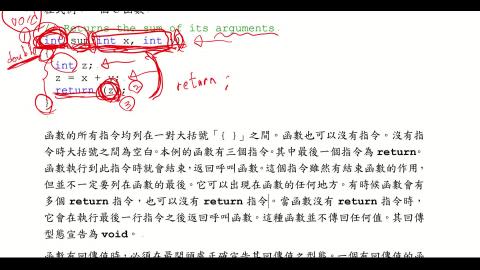 void
// Returns the sum of its arguments
int sum(int x, int y)
double
int z;
z = x + y;
return (z);
return ;
函數的所有指令均列在一對大括號「{ }」之間。函數也可以沒有指令。沒有指
令時大括號之間為空白。本例的函數有三個指令。其中最後一個指令為 return。
函數執行到此指令時就會結束，返回呼叫函數。這個指令雖然有結束函數的作用，
但並不一定要列在函數的最後。它可以出現在函數的任何地方。有時候函數會有
多個 return 指令，也可以沒有 return 指令。當函數沒有 return 指令時，
它會在執行最後一行指令之後返回呼叫函數。這種函數並不傳回任何值。其回傳
型態宣告為 void。
函數有回傳值時，必須在最開頭處正確宣告其回傳值之型態。一個有回傳值的函